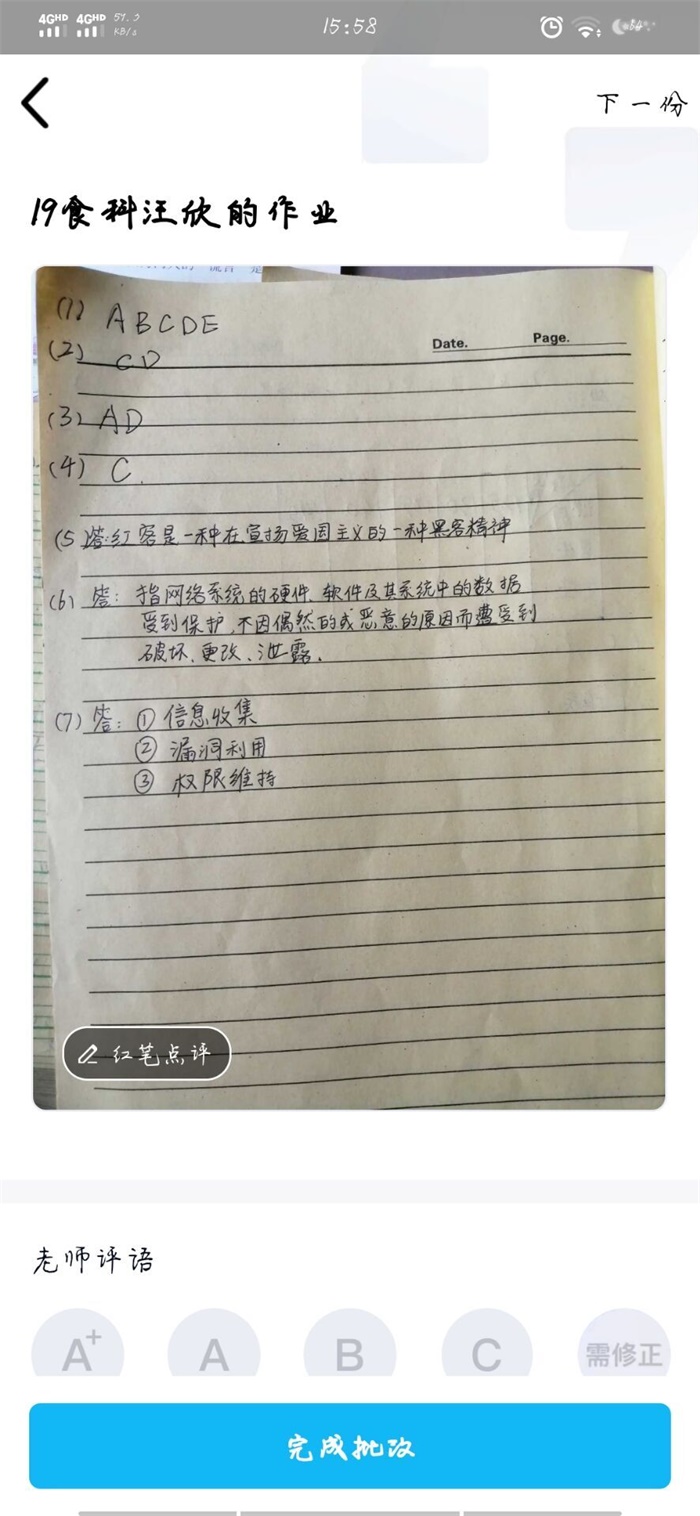 4GHD 4GHD 57.2 KB/s 15:58
下一份
19食科汪欣的作业
(1) ABCDE
Date. Page.
(2) CD
(3) AD
(4) C.
(5 答:红客是一种在宣扬爱国主义的一种黑客精神
(6) 答：指网络系统的硬件、软件及其系统中的数据
受到保护,不因偶然的或恶意的原因而遭受到
破坏、更改、泄露.
(7) 答：① 信息收集
② 漏洞利用
③ 权限维持
红笔点评
老师评语
A+ A B C 需修正
完成批改